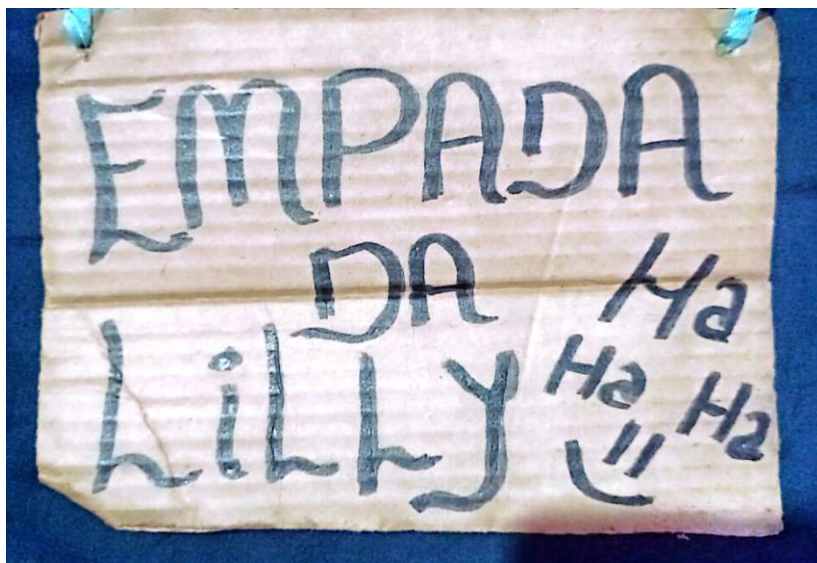 EMPADA
DA
LiLLy
Ha
Ha
Ha